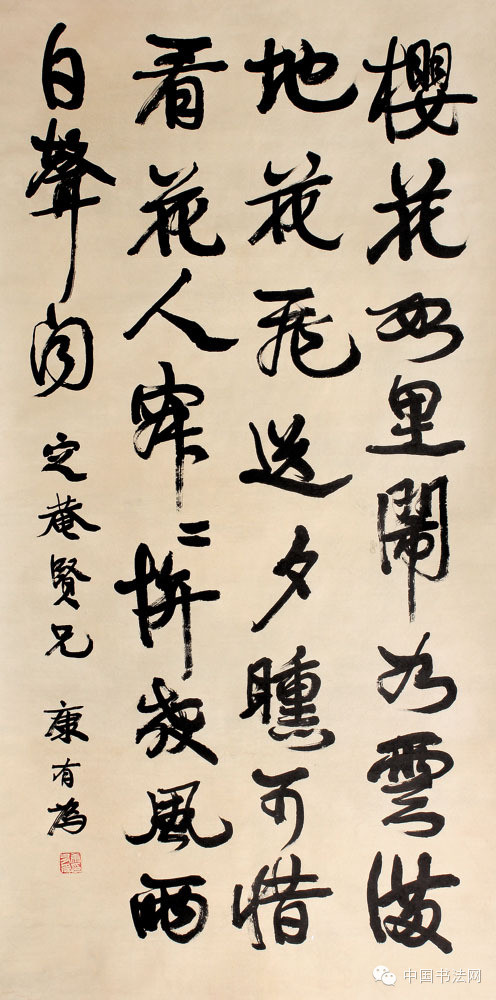 櫻花數里鬧如雲滿
地花飛送夕曛可惜
看花人寂〻拚教風雨
自聲聞
定庵賢兄 康有為
中国书法网